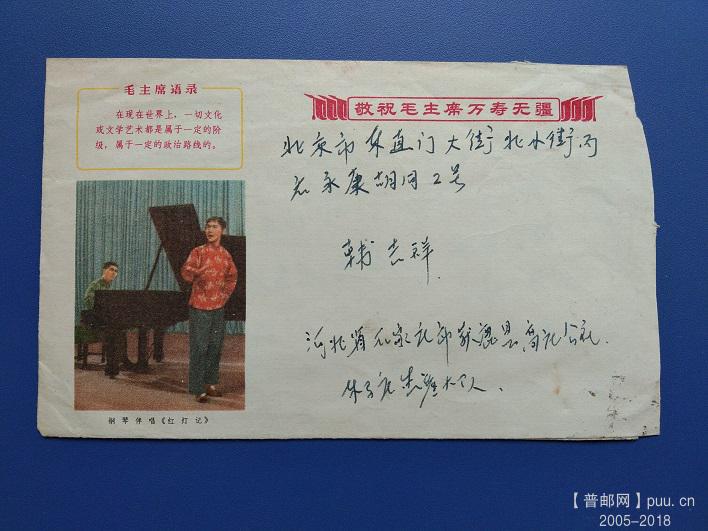 毛主席语录
在现在世界上,一切文化
或文学艺术都是属于一定的阶
级,属于一定的政治路线的。
钢琴伴唱《红灯记》
敬祝毛主席万寿无疆
北京市东直门大街北小街
永康胡同2号
韩志祥
河北省石家庄获鹿县 公社
大队
【普邮网】puu.cn
2005-2018